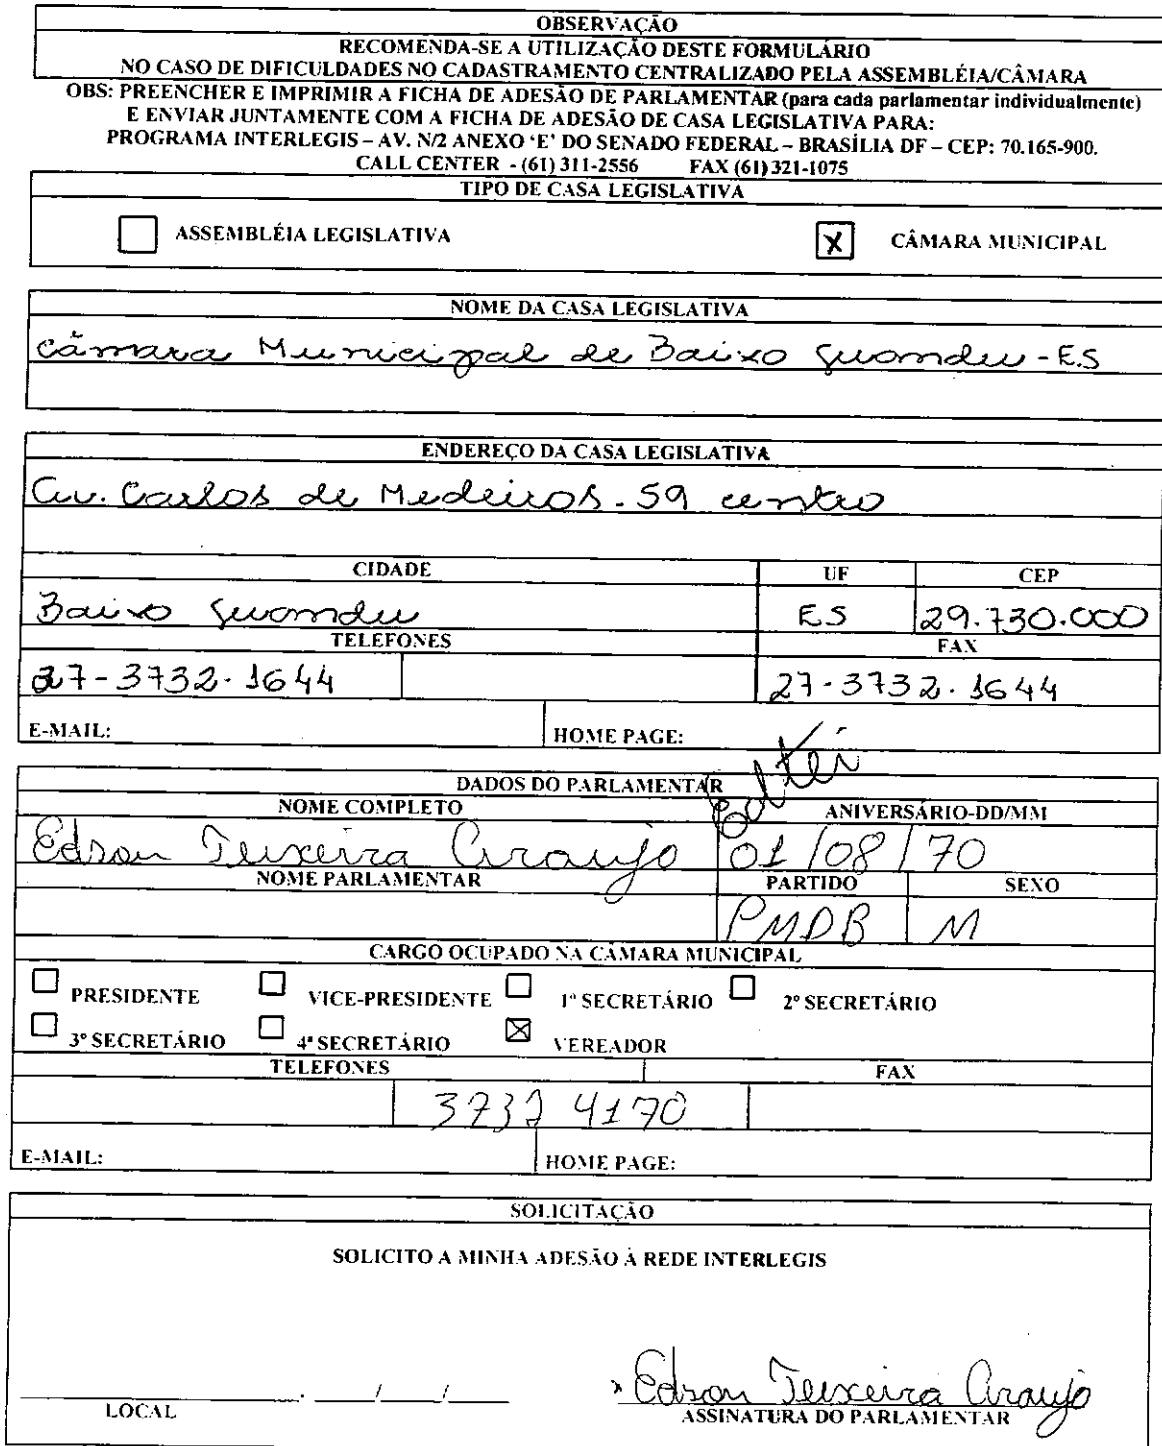 OBSERVAÇÃO
RECOMENDA-SE A UTILIZAÇÃO DESTE FORMULÁRIO
NO CASO DE DIFICULDADES NO CADASTRAMENTO CENTRALIZADO PELA ASSEMBLÉIA/CÂMARA
OBS: PREENCHER E IMPRIMIR A FICHA DE ADESÃO DE PARLAMENTAR (para cada parlamentar individualmente)
E ENVIAR JUNTAMENTE COM A FICHA DE ADESÃO DE CASA LEGISLATIVA PARA:
PROGRAMA INTERLEGIS – AV. N/2 ANEXO 'E' DO SENADO FEDERAL – BRASÍLIA DF – CEP: 70.165-900.
CALL CENTER - (61) 311-2556 FAX (61) 321-1075
TIPO DE CASA LEGISLATIVA
ASSEMBLÉIA LEGISLATIVA X CÂMARA MUNICIPAL
NOME DA CASA LEGISLATIVA
Câmara Municipal de Baixo Guandu - E.S
ENDEREÇO DA CASA LEGISLATIVA
Av. Carlos de Medeiros - 59 centro
CIDADE UF CEP
Baixo Guandu E.S 29.730.000
TELEFONES FAX
27-3732.1644 27-3732.1644
E-MAIL: HOME PAGE:
DADOS DO PARLAMENTAR
NOME COMPLETO ANIVERSÁRIO-DD/MM
Edson Teixeira Araujo 01/08/70
NOME PARLAMENTAR PARTIDO SEXO
PMDB M
CARGO OCUPADO NA CÂMARA MUNICIPAL
PRESIDENTE VICE-PRESIDENTE 1º SECRETÁRIO 2º SECRETÁRIO
3º SECRETÁRIO 4ª SECRETÁRIO X VEREADOR
TELEFONES FAX
3732 4170
E-MAIL: HOME PAGE:
SOLICITAÇÃO
SOLICITO A MINHA ADESÃO À REDE INTERLEGIS
Edson Teixeira Araujo
LOCAL ASSINATURA DO PARLAMENTAR